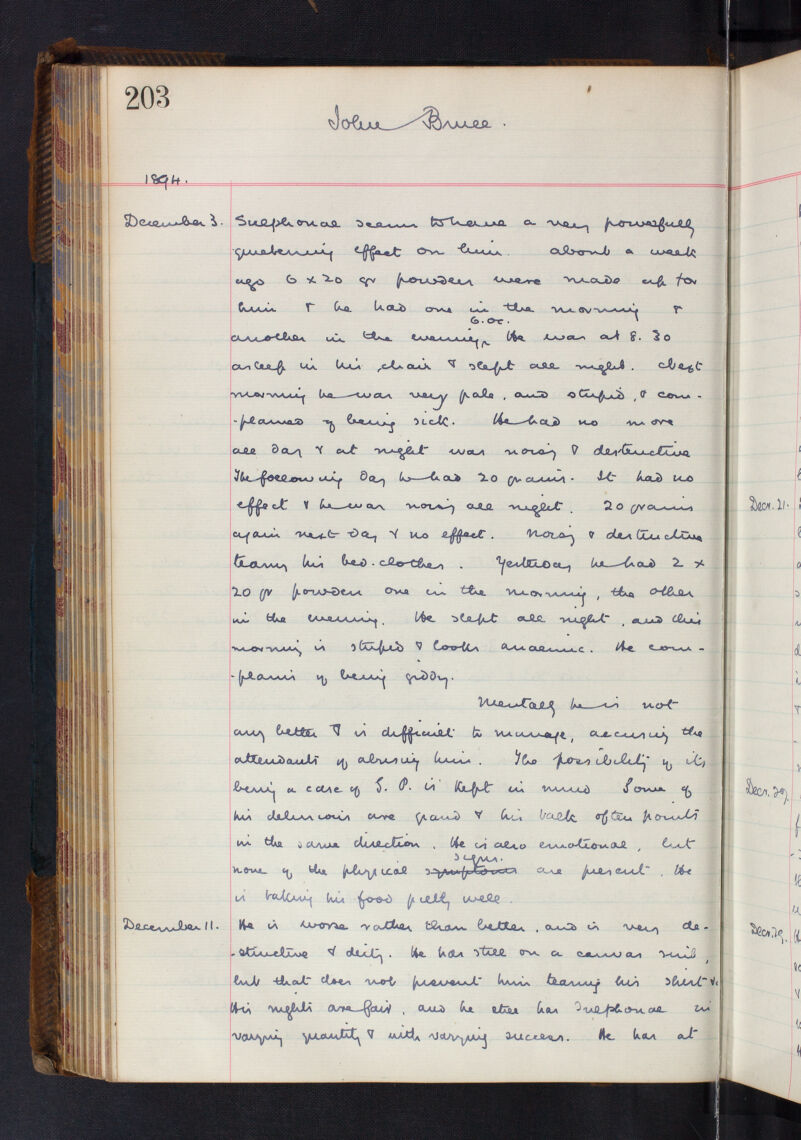 203
John Bruce.
1894.
December 3. Sulphonal seems to have a very powerfully
quietening effect on him. About a week
ago 6 x 20 gr powders were made up for
him & he had one in the morning &
another in the evening, 6.oc. He was at 8.30
asleep in his chair & slept all night. Next
morning he was very pale, and stupid, & com-
-plained of being sick. He had no more
all day & at night was noisy & destructive
The following day he had 20 grains. It had no
effect & he was noisy all night. 20 grains
again next day & no effect. Noisy & destructive
tearing his bed-clothes. Yesterday he had 2 x
20 gr powders one in the morning, the other
in the evening. He slept all night, and this
morning is stupid & looks anaemic. He com-
-plains of being giddy.
Mentally he is not
any better & is difficult to manage, accusing the
attendants of abusing him. The possibility of its
being a case of G. P. is kept in mind Some of
his delusions are grand & his talk often points
in the same direction. He is also emotional, but
none of the physical symptoms signs. are present. He
is taking his food pretty well.
December 11. He is worse rather than better, and is very de-
-structive & dirty. He has still on a canvas suit,
but that does not prevent him tearing his shirt &c
His nights are fair, and he still has Sulphonal in
varying quantity & with varying success. He has at
Decr. 21.
Decr. 29.
Decr. 29.